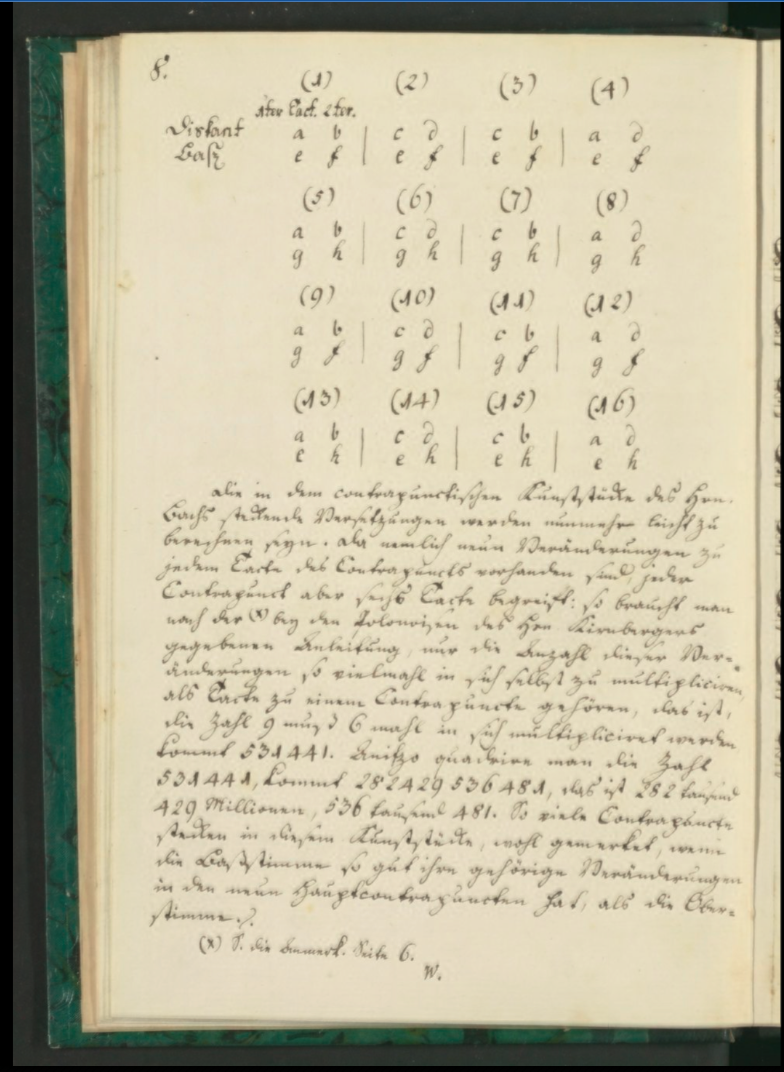 8.
(1) (2) (3) (4)
1ter Tact. 2ter.
Diskant a b | c d | c b | a d
Baß e f | e f | e f | e f
(5) (6) (7) (8)
a b | c d | c b | a d
g h | g h | g h | g h
(9) (10) (11) (12)
a b | c d | c b | a d
g f | g f | g f | g f
(13) (14) (15) (16)
a b | c d | c b | a d
e h | e h | e h | e h
Die in dem contrapunctischen Kunststücke des Hrn.
Bachs steckende Versetzungen werden nunmehr leicht zu
berechnen seyn. Da nemlich neun Veränderungen zu
jedem Tacte des Contrapuncts vorhanden sind, jeder
Contrapunct aber sechs Tacte begreift: so braucht man
nach der (x) bey den Polonoisen des Hrn Kirnbergers
gegebenen Anleitung, nur die Anzahl dieser Ver-
änderungen so vielmahl in sich selbst zu multipliciren,
als Tacte zu einem Contrapuncte gehören, das ist,
die Zahl 9 muß 6 mahl in sich multipliciret werden
kommt 531441. Anitzo quadrire man die Zahl
531441, kommt 282429536481, das ist 282 tausend
429 Millionen, 536 tausend 481. So viele Contrapuncte
stecken in diesem Kunststücke, wohl gemerket, wenn
die Baßstimme so gut ihre gehörige Veränderungen
in den neun Hauptcontrapuncten hat, als die Ober-
stimme.
(x) S. die Anmerk. Seite 6.
W.